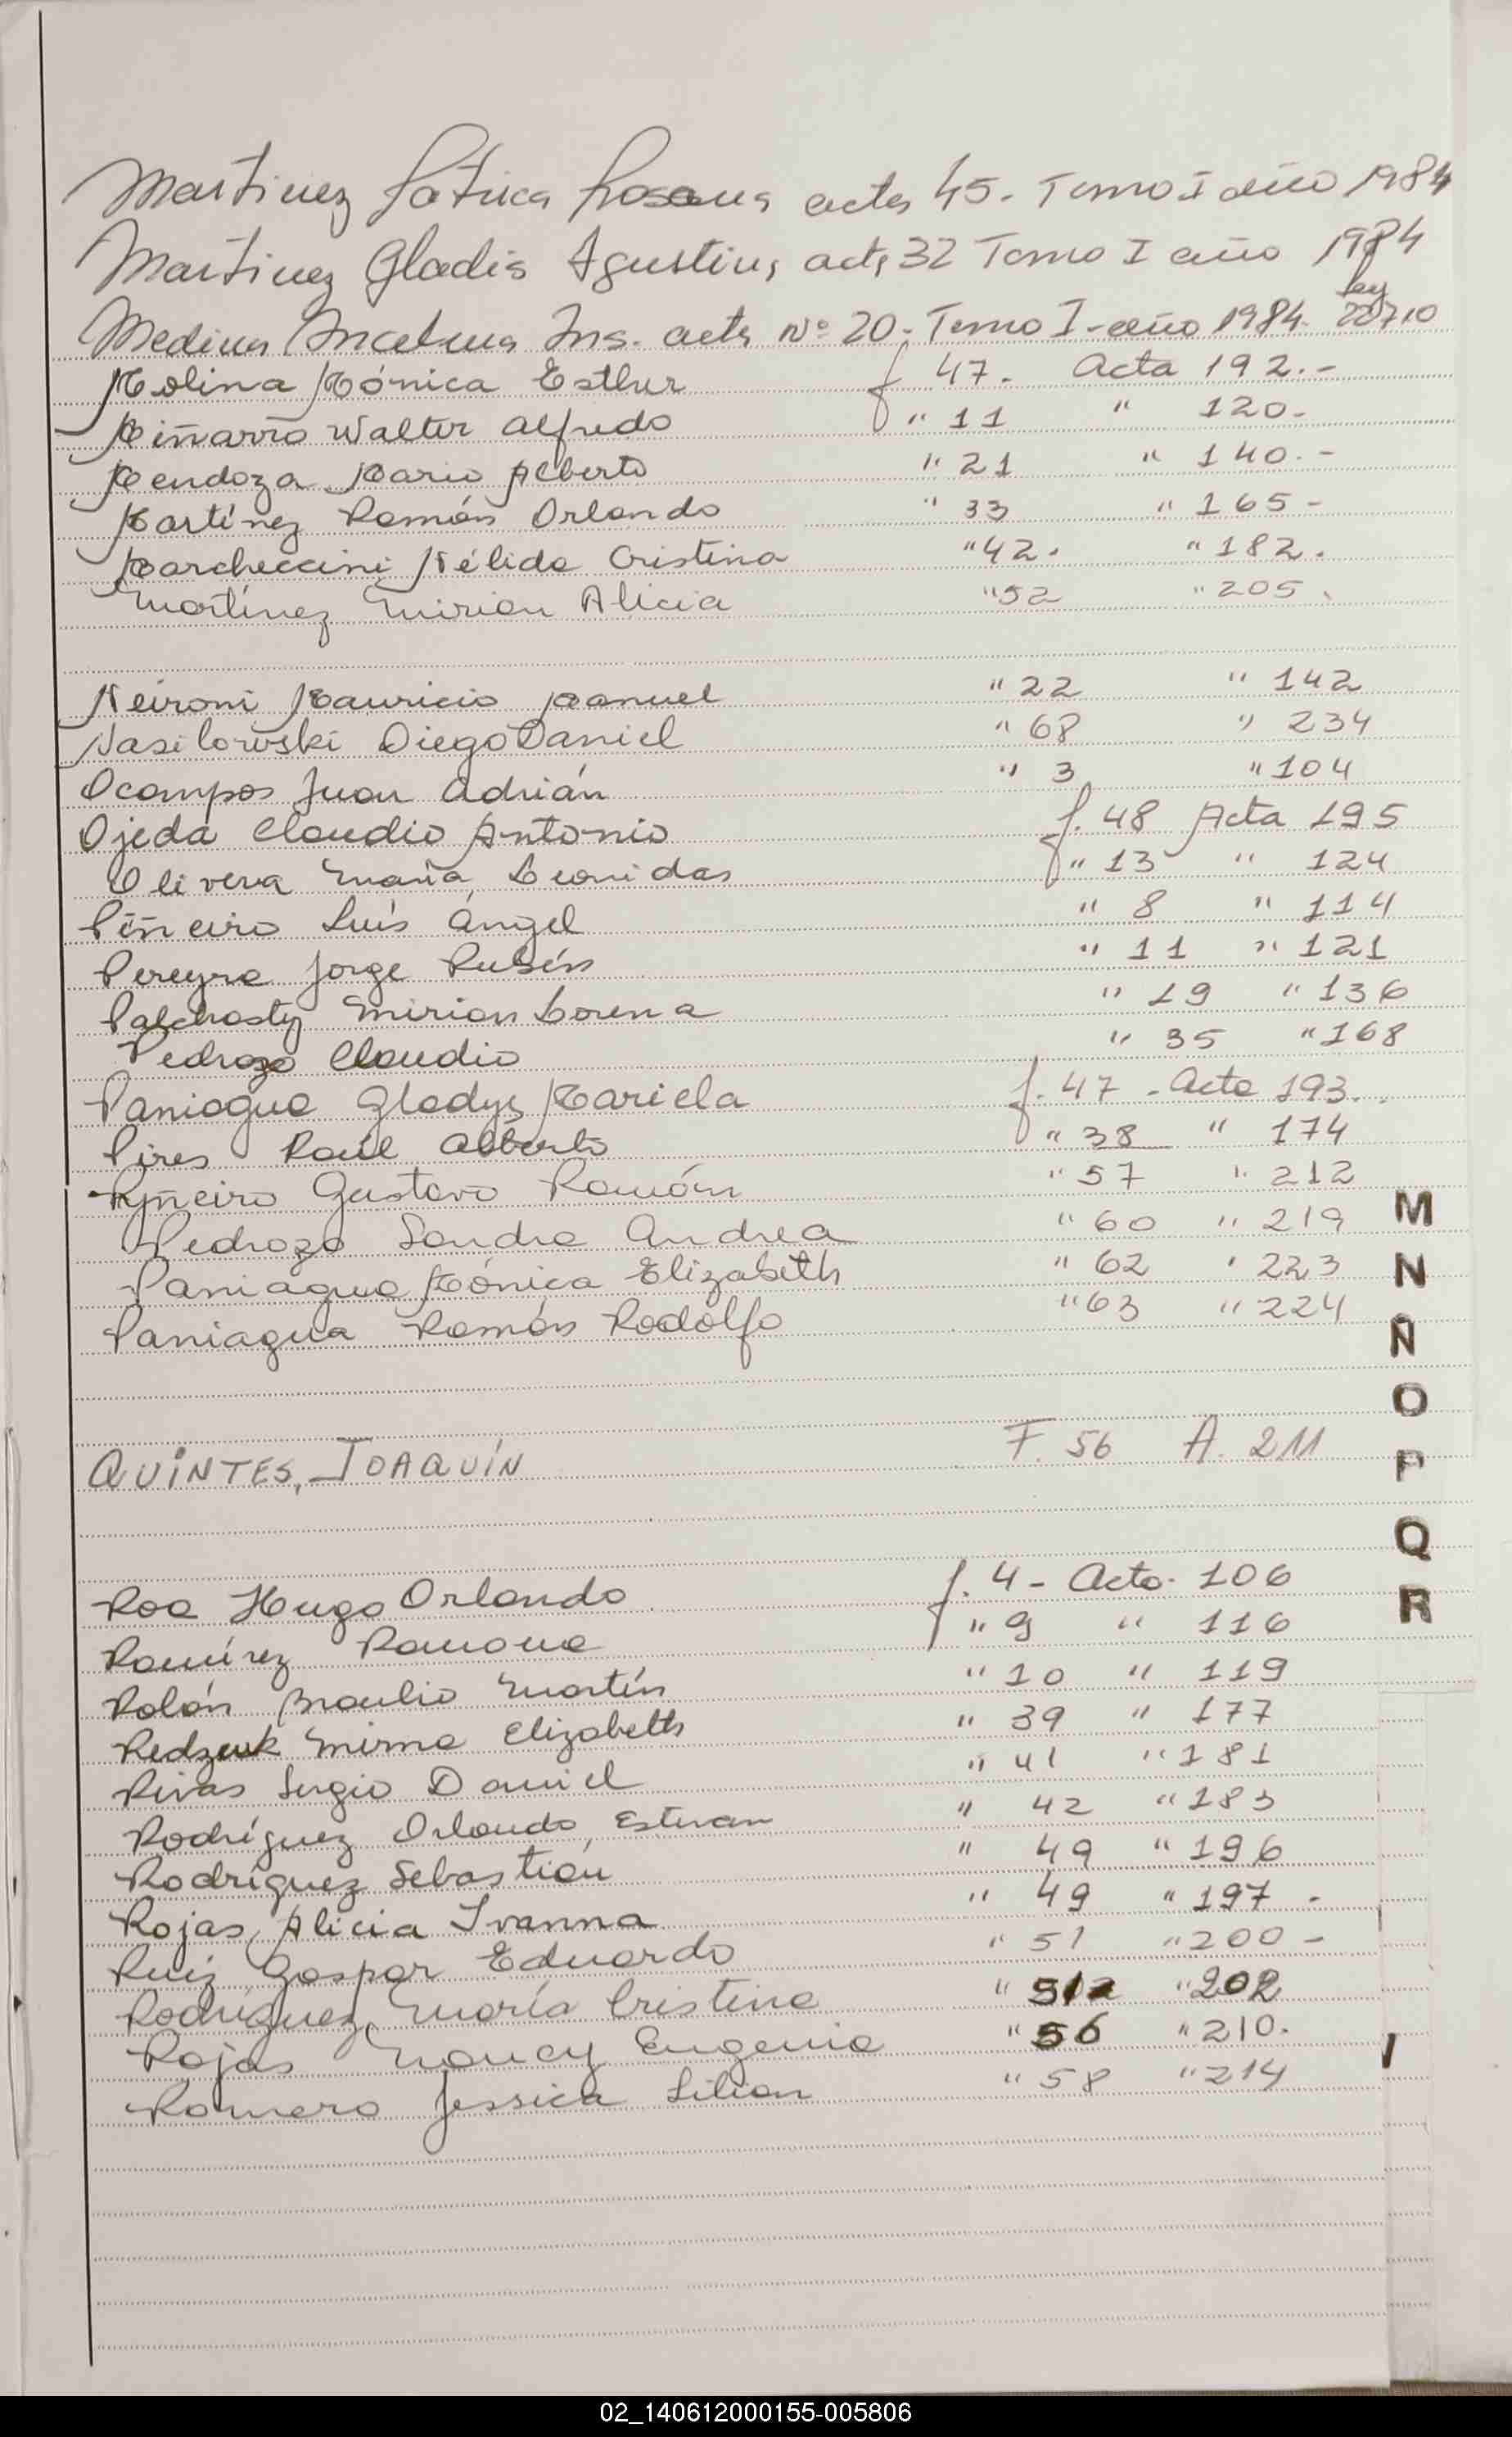 Martinez Patricia Rosana acta 45. Tomo I año 1984
Martinez Gladis Agustina acta 32 Tomo I año 1984
Medina Ins. acta Nº 20. Tomo I - año 1984. ley 22710
Molina Mónica Esther f 47. Acta 192.-
Miñarro Walter Alfredo " 11 " 120.
Mendoza Mario Alberto " 21 " 140.-
Martínez Ramón Orlando " 33 " 165-
Marcheccini Nélida Cristina " 42. " 182.
Martínez Mirian Alicia " 52 " 205.
Neironi Mauricio Manuel " 22 " 142
Nasilowski Diego Daniel " 68 " 234
Ocampos Juan Adrián " 3 " 104
Ojeda Claudio Antonio f. 48 Acta 195
Olivera María Leonidas " 13 " 124
Piñeiro Luis Ángel " 8 " 114
Pereyra Jorge Rubén " 11 " 121
Palchasty Mirian Lorena " 19 " 136
Pedrozo Claudio " 35 " 168
Paniagua Gladys Mariela f. 47 - Acta 193.
Pires Raúl Alberto " 38 " 174
Pyñeiro Gustavo Ramón " 57 " 212
Pedrozo Sandra Andrea " 60 " 219
M
Paniagua Mónica Elizabeth " 62 " 223
N
Paniagua Ramón Rodolfo " 63 " 224
Ñ
O
QUINTES, JOAQUÍN F. 56 A. 211
P
Q
Roa Hugo Orlando f. 4 - Acta. 106
R
Ramírez Ramona " 9 " 116
Rolón Braulio Martín " 10 " 119
Redzuk Mirna Elizabeth " 39 " 177
Rivas Sergio Daniel " 41 " 181
Rodríguez Orlando Estevan " 42 " 183
Rodríguez Sebastián " 49 " 196
Rojas, Alicia Ivanna " 49 " 197 -
Ruiz Gaspar Eduardo " 51 " 200 -
Rodríguez, María Cristina " 51 " 202
Rojas Nancy Eugenia " 56 " 210.
Romero Jessica Lilian " 58 " 214
02_140612000155-005806